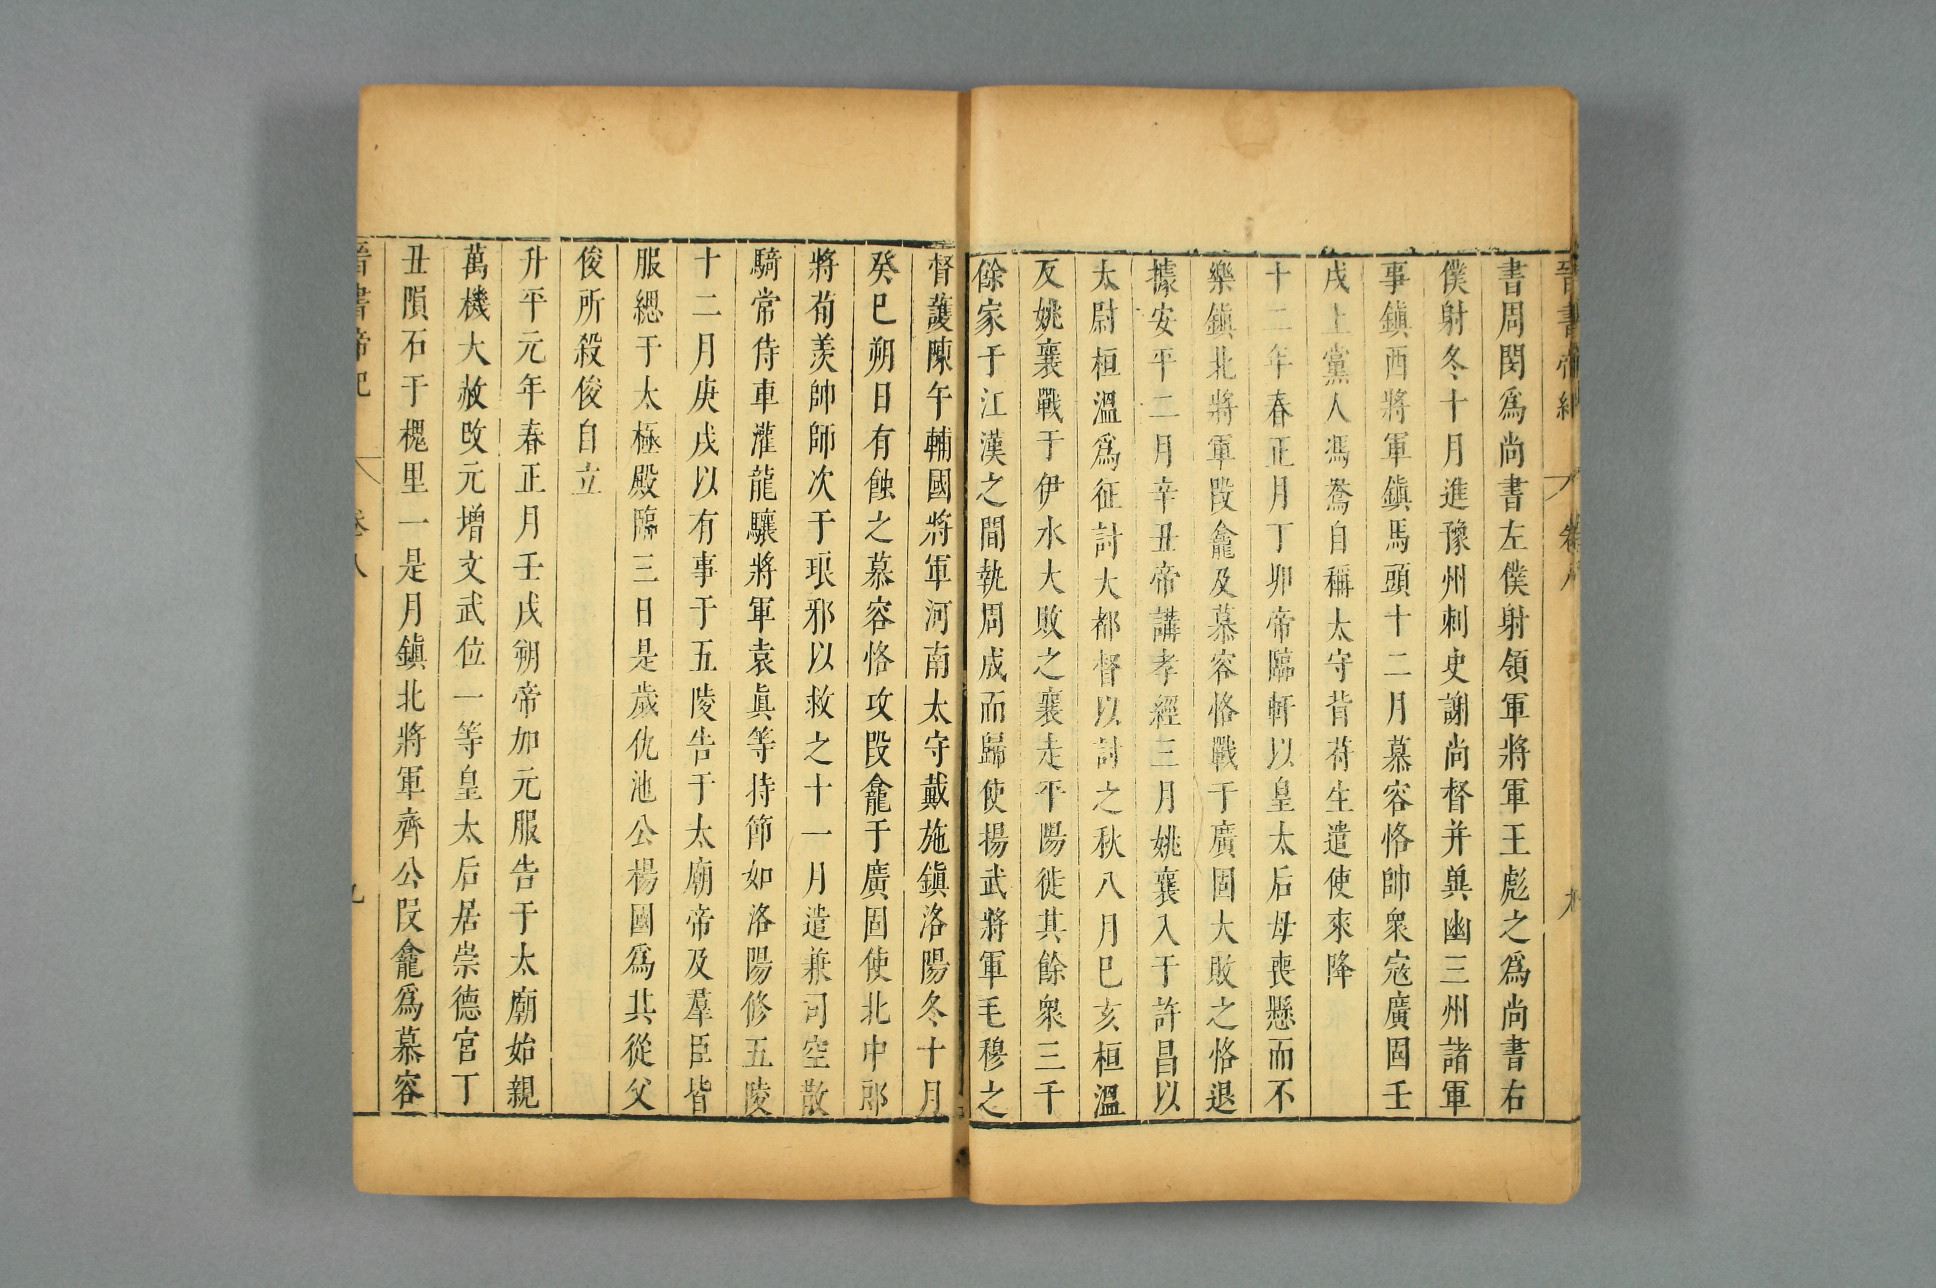 晉書帝紀 卷八 九
書周閔爲尚書左僕射領軍將軍王彪之爲尚書右
僕射冬十月進豫州刺史謝尚督并兾幽三州諸軍
事鎮西將軍鎮馬頭十二月慕容恪帥衆寇廣固壬
戌上黨人馮鴦自稱太守背苻生遣使來降
十二年春正月丁卯帝臨軒以皇太后母喪懸而不
樂鎮北將軍段龕及慕容恪戰于廣固大敗之恪退
據安平二月辛丑帝講孝經三月姚襄入于許昌以
太尉桓溫爲征討大都督以討之秋八月巳亥桓溫
及姚襄戰于伊水大敗之襄走平陽徙其餘衆三千
餘家于江漢之間執周成而歸使揚武將軍毛穆之
督護陳午輔國將軍河南太守戴施鎮洛陽冬十月
癸巳朔日有蝕之慕容恪攻段龕于廣固使北中郎
將荀羨帥師次于琅邪以救之十一月遣兼司空散
騎常侍車灌龍驤將軍袁眞等持節如洛陽修五陵
十二月庚戌以有事于五陵告于太廟帝及羣臣皆
服緦于太極殿臨三日是歲仇池公楊國爲其從父
俊所殺俊自立
升平元年春正月壬戌朔帝加元服告于太廟始親
萬機大赦改元增文武位一等皇太后居崇德宮丁
丑隕石于槐里一是月鎮北將軍齊公段龕爲慕容
晉書帝紀 卷八 九